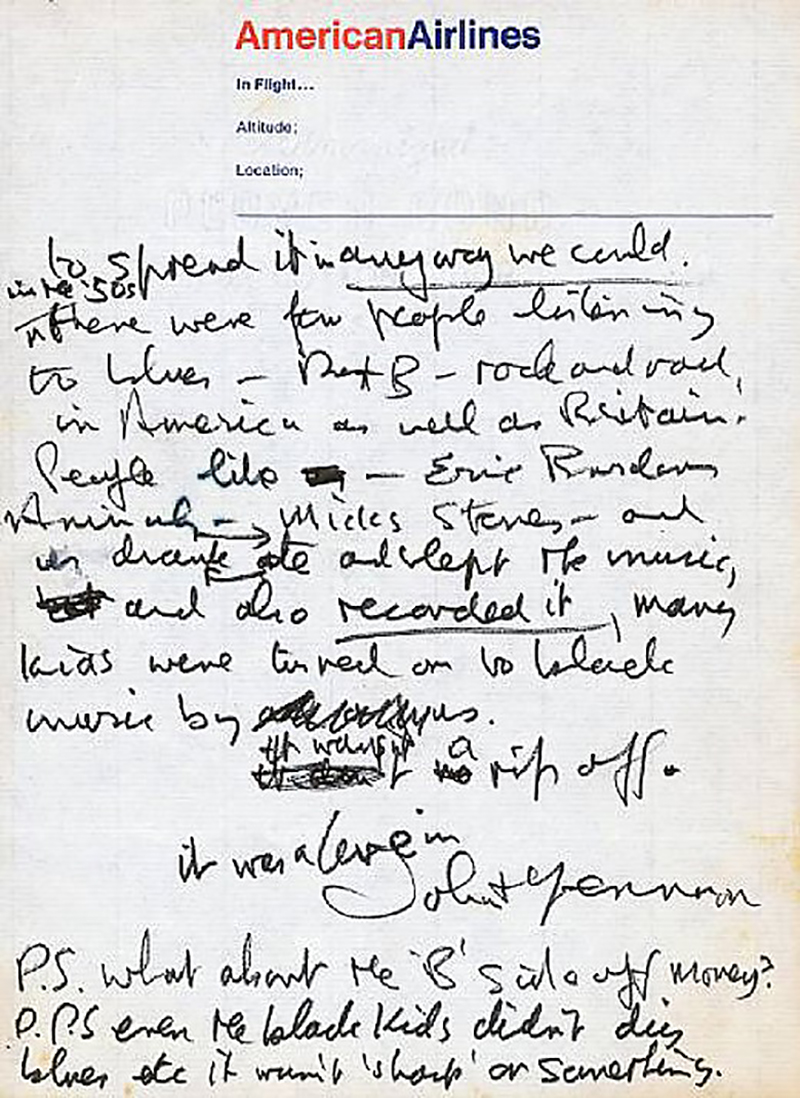 AmericanAirlines
In Flight...
Altitude;
Location;
to spread it in anyway we could.
in the '50s
there were few people listening
to blues – R + B – rock and roll,
in America as well as Britain.
People like – Eric Burdons
Animals – Micks Stones – and
us drank ate and slept the music,
and also recorded it, many
kids were turned on to black
music by us.
it wasn't a rip off.
it was a love in
John + Yoko Lennon
P.S. what about the 'B' side of money?
P.P.S even the black kids didn't dig
blues etc it wasn't 'sharp' or something.